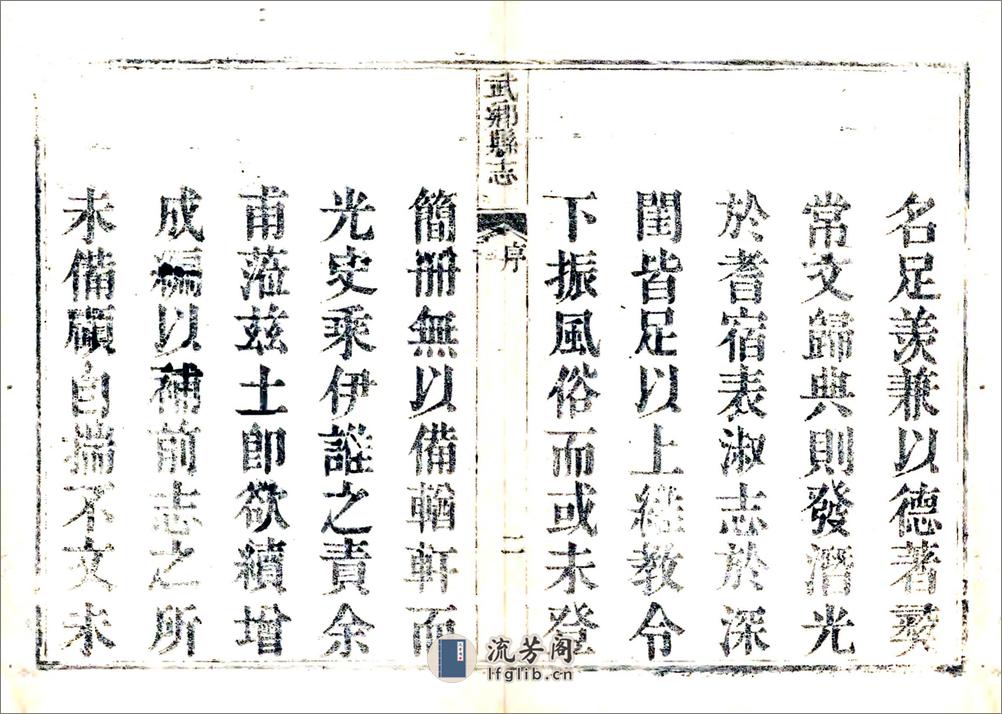 名足羨兼以德著彛
常文歸典則發潛光
於耆宿表淑志於深
閨皆足以上維教令
下振風俗而或未登
武鄉縣志
序
二
簡册無以備輶軒而
光史乘伊誰之責余
甫蒞茲土即欲續增
成編以補前志之所
未備顧自揣不文未
流芳阁
lfglib.cn